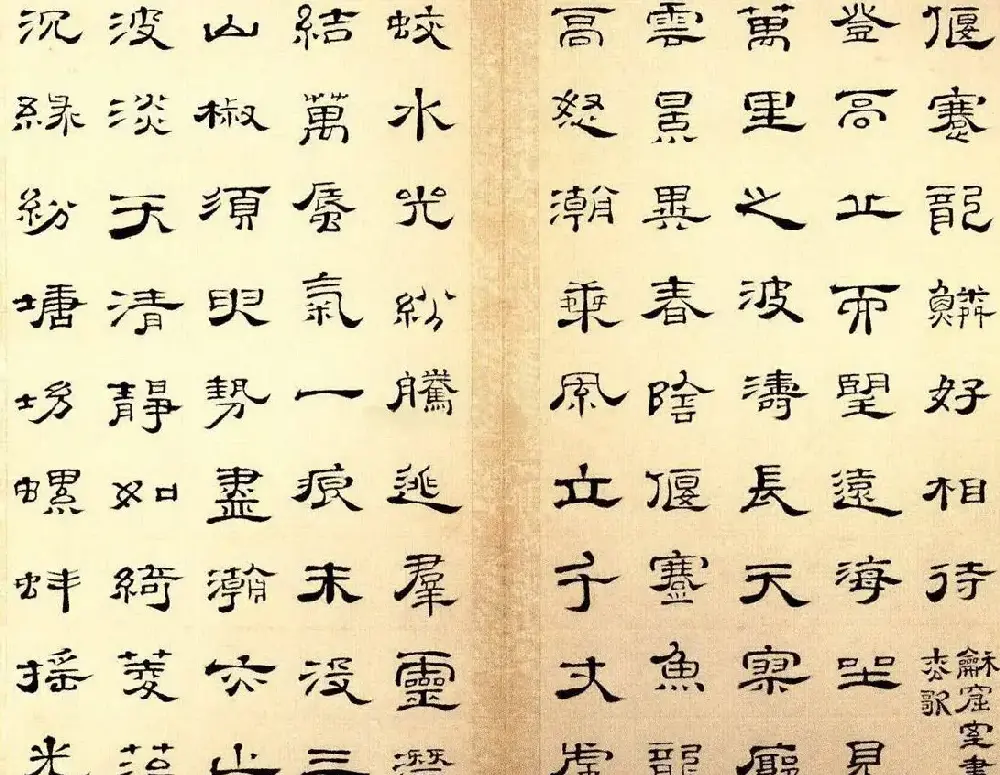 偃蹇龍鱗好相待
龢窟室畫
松歌
登高丘而望遠海坐見
萬里之波濤長天寥廓
雲景異春陰偃蹇魚龍
高怒潮乘風立千丈虛
蛟水光紛騰逃羣靈潛
結萬蜃氣一痕末没三
山椒須臾勢盡潮亦止
波淡天清靜如綺菱
沉綠紛塘坳螺蚌搖光